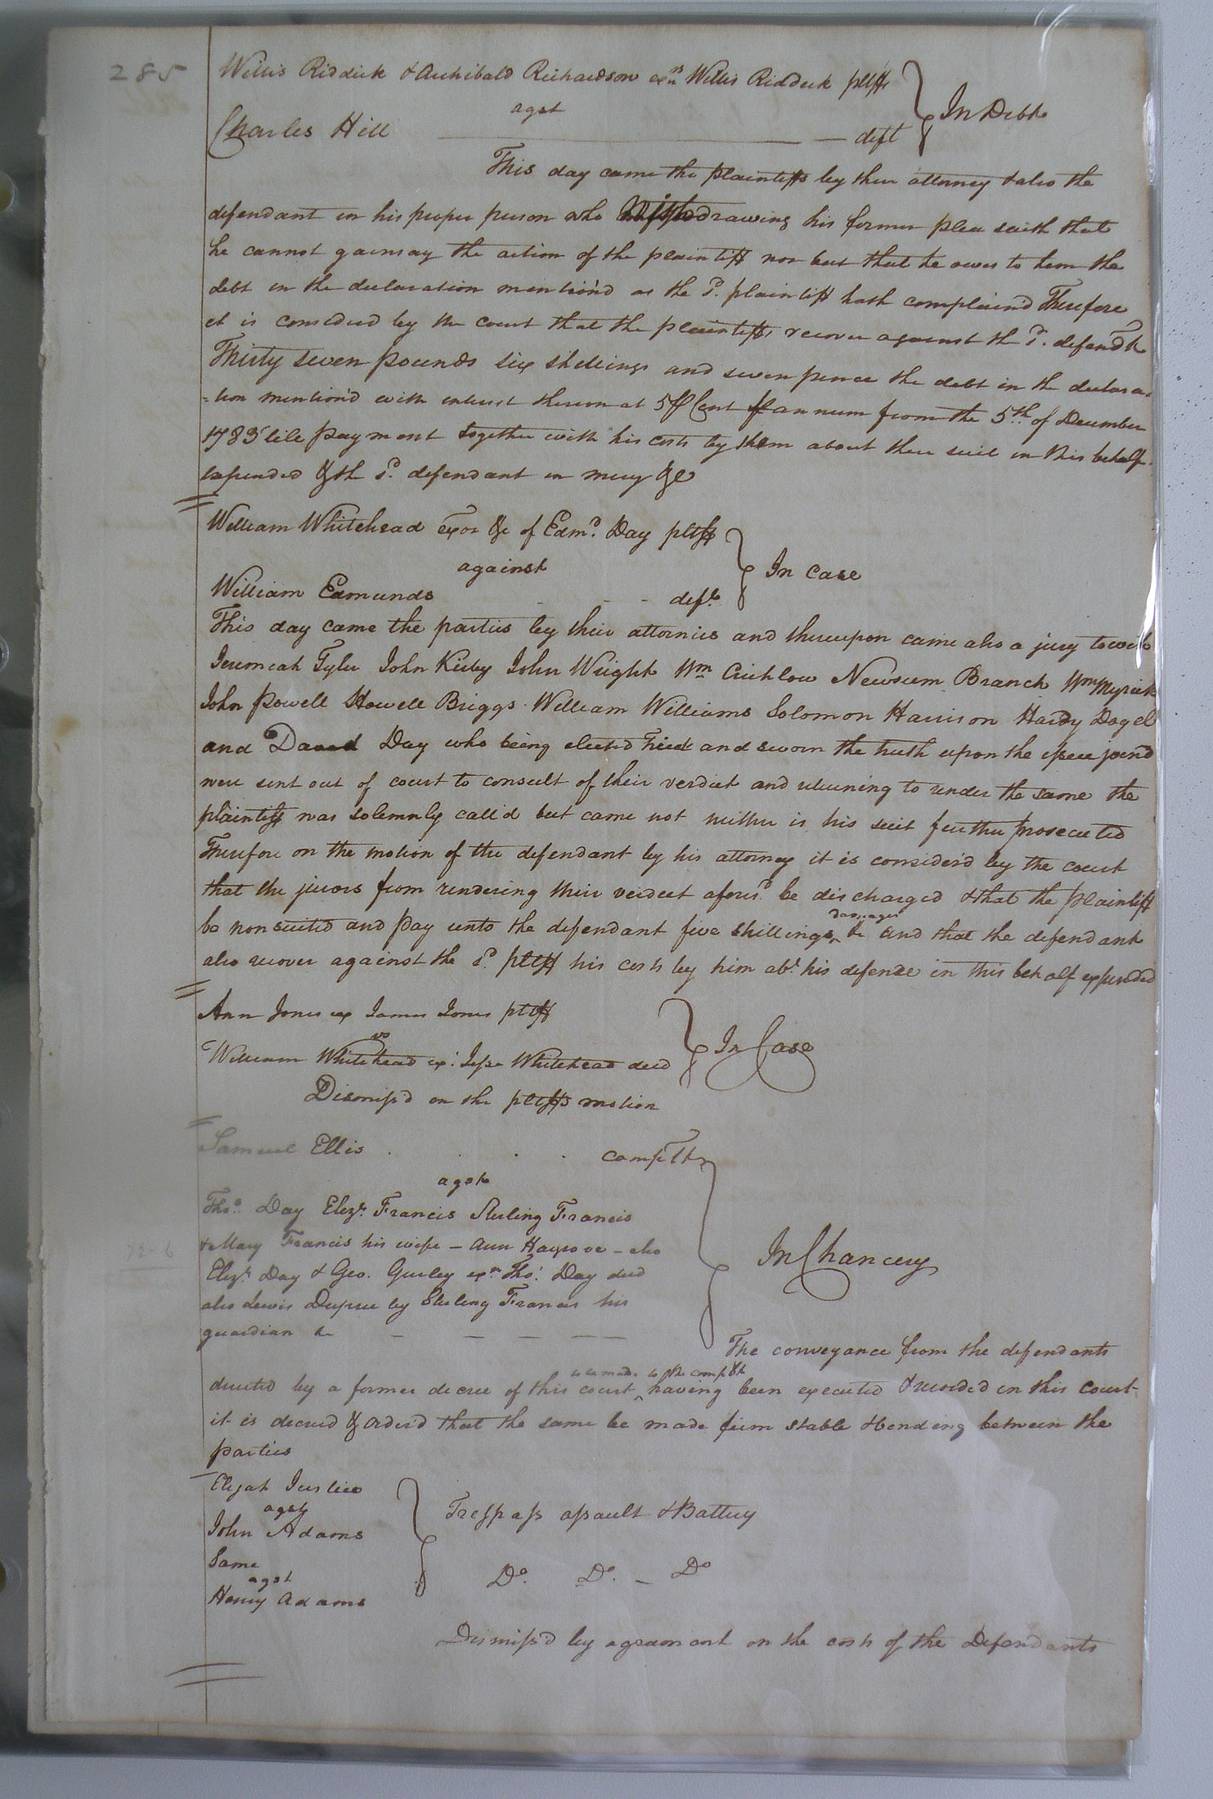 285
Willis Riddick & Archibald Richardson exrs Willis Riddick pltffs
agst } In Debt
Charles Hill — deft
This day came the plaintiffs by their attorney & also the
defendant in his proper person who withdrawing his former plea saith that
he cannot gainsay the action of the plaintiff nor but that he owes to them the
debt in the declaration mention'd as the sd. plaintiff hath complain'd Therefore
it is considered by the court that the plaintiffs recover against the sd. defendt
Thirty seven pounds six shillings and seven pence the debt in the declara-
-tion mention'd with interest thereon at 5 p Cent p annum from the 5th of December
1783 till payment together with his costs by them about their suit in this behalf
expended & the sd. defendant in mercy &c
William Whitehead exor &c of Edmd. Day pltff
against } In Case
William Edmunds - - deft.
This day came the parties by their attornies and thereupon came also a jury towit
Jeremiah Tyler John Kirby John Wright Wm Crichlow Newsum Branch Wm Myrick
John Powell Howell Briggs William Williams Solomon Harrison Hardy
and David Day who being elected tried and sworn the truth upon the issue joind
were sent out of court to consult of their verdict and returning to render the same the
plaintiff was solemnly call'd but came not neither is his suit further prosecuted
Therefore on the motion of the defendant by his attorney it is consider'd by the court
that the jurors from rendering their verdict aforesd be discharged & that the plaintiff
damages
be nonsuited and pay unto the defendant five shillings & and that the defendant
also recover against the sd. pltff his costs by him abt his defence in this behalf expended
Ann Jones ex James Jones pltff
vs } In Case
William Whitehead ex: Jesse Whitehead decd
Dismiss'd on the pltffs motion
Samuel Ellis . . . complt
agst
Thos. Day Elizt. Francis Sterling Francis
& Mary Francis his wife - Ann - also
Elizt. Day & Geo. Gurley exrs Thos. Day decd } In Chancery
also Lewis Dupree by Sterling Francis his
guardian & - - - - -
The conveyance from the defendants
to be made to the complt
directed by a former decree of this court having been executed & recorded in this court
it is decreed & order'd that the same be made firm stable & bending between the
parties
Elijah Justice
agst } Trespass assault & Battery
John Adams
Same
agst Do. Do. - Do
Henry Adams
Dismiss'd by agreement on the costs of the Defendants